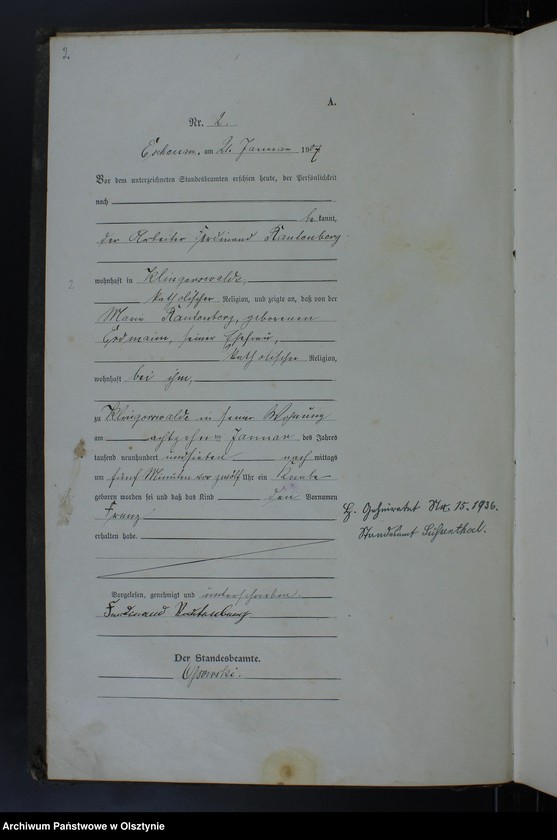 2.
A.
Nr. 2.
am 21. Januar 1907
Vor dem unterzeichneten Standesbeamten erschien heute, der Persönlichkeit
nach
be kannt,
der Arbeiter Ferdinand Rautenberg
wohnhaft in Klingerswalde,
katholischer Religion, und zeigte an, daß von der
Maria Rautenberg, geborenen
seiner Ehefrau,
katholischer Religion,
wohnhaft bei ihm,
zu Klingerswalde in seiner Wohnung
am achtzehnten Januar des Jahres
tausend neunhundert und sieben nach mittags
um fünf Minuten vor zwölf Uhr ein Knabe
geboren worden sei und daß das Kind den Vornamen
Franz
erhalten habe.
H. Geheiratet Nr. 15. 1936.
Standesamt Süßenthal.
Vorgelesen, genehmigt und unterschrieben
Ferdinand Rautenberg
Der Standesbeamte.
2
Archiwum Państwowe w Olsztynie